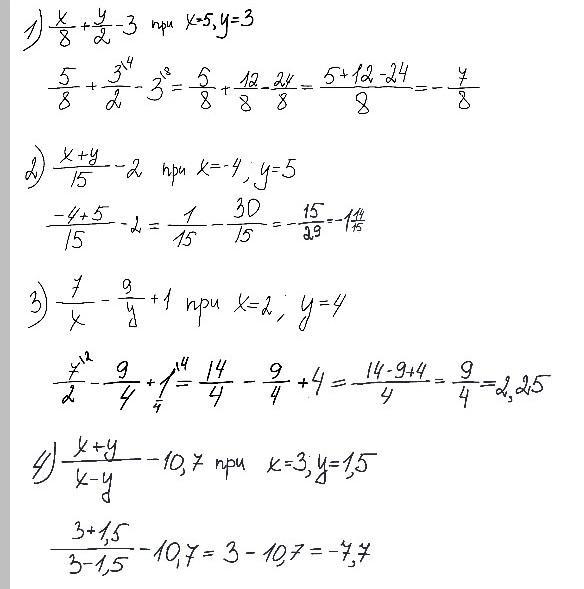 1) x/8 + y/2 - 3 при x=5, y=3
5/8 + 3\4/2 - 3\8 = 5/8 + 12/8 - 24/8 = 5+12-24/8 = - 7/8
2) x+y/15 - 2 при x=-4; y=5
-4+5/15 - 2 = 1/15 - 30/15 = - 15/29 = -1 14/15
3) 7/x - 9/y + 1 при x=2; y=4
7\2/2 - 9/4 + 1\4/4 = 14/4 - 9/4 + 4 = 14-9+4/4 = 9/4 = 2,25
4) x+y/x-y - 10,7 при x=3; y=1,5
3+1,5/3-1,5 - 10,7 = 3 - 10,7 = -7,7